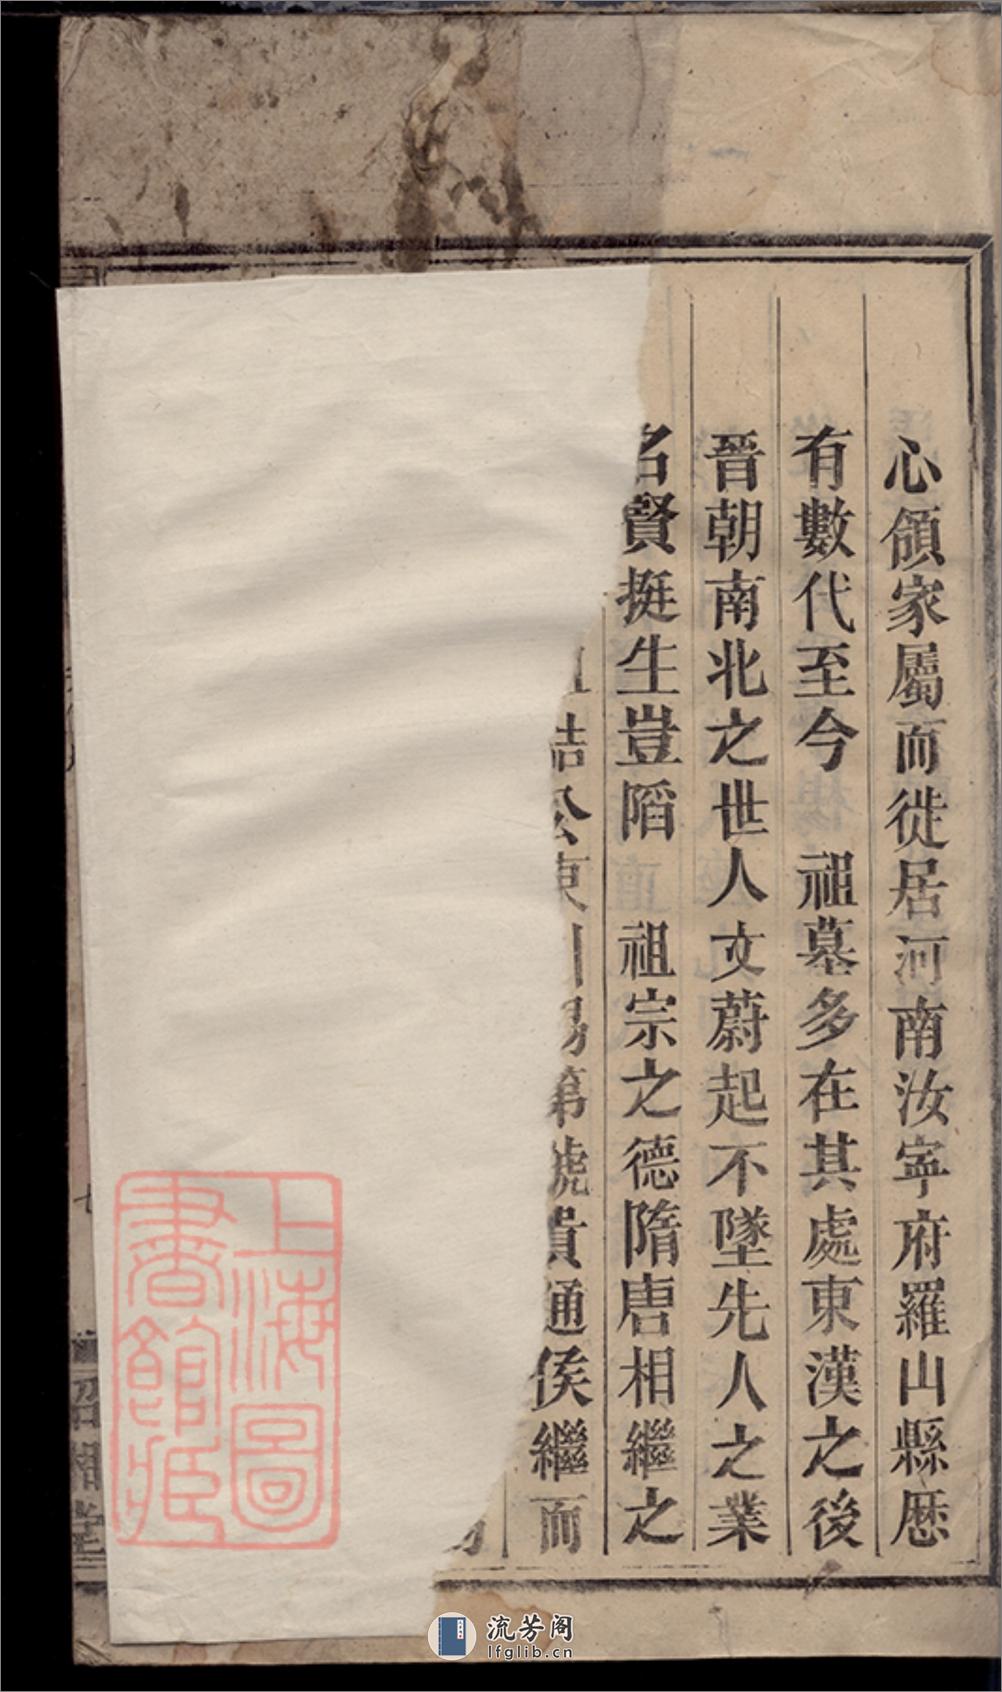 心領家屬而徙居河南汝寜府羅山縣歷
有數代至今 祖墓多在其處東漢之後
晉朝南北之世人文蔚起不墜先人之業
名賢挺生豈蹈 祖宗之德隋唐相繼之
公東 第 貴通侯繼而
上海圖書館藏
流芳阁
lfglib.cn